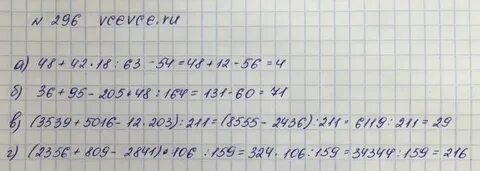 № 296 vcevce.ru
а) 48 + 42 · 18 : 63 - 54 = 48 + 12 - 56 = 4
б) 36 + 95 - 205 · 48 : 164 = 131 - 60 = 71
в) (3539 + 5016 - 12 · 203) : 211 = (8555 - 2436) : 211 = 6119 : 211 = 29
г) (2356 + 809 - 2841) · 106 : 159 = 324 · 106 : 159 = 34344 : 159 = 216